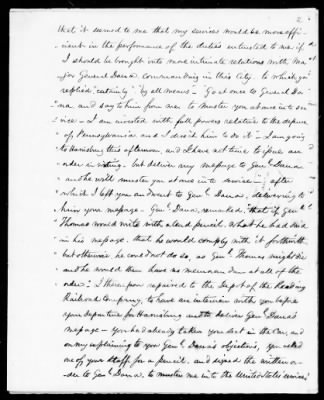 2
that it seemed to me that my services would be more effi-
cient in the performance of the duties entrusted to me if
I should be brought into more intimate relations with Ma-
jor General Dana commanding in this City - to which you
replied "certainly" by all means - Go at once to General Da-
na and say to him from me to muster you at once into ser-
vice - I am invested with full powers relative to the defence
of Pennsylvania and I desire him to do it - I am going
to Harrisburg this afternoon, and I have not time to give an
order in writing - but deliver my message to Genl. Dana
and he will muster you at once into service - after
which I left you and went to Genl. Dana's, delivering to
him your message - Genl. Dana remarked, that if Genl.
Thomas would write with a lead pencil, what he had said
in his message, that he would comply with it forthwith
but otherwise he could not do so, as Genl. Thomas might die
and he would then have no memorandum at all of the
order. I thereupon repaired to the Depot of the Reading
Railroad Company, to have an interview with you before
your departure for Harrisburg and to deliver Genl. Dana's
message - you had already taken your seat in the Car, and
on my explaining to you Genl. Dana's objections, you asked
one of your staff for a pencil, and signed the written or-
der to Genl. Dana, to muster me into the United States service